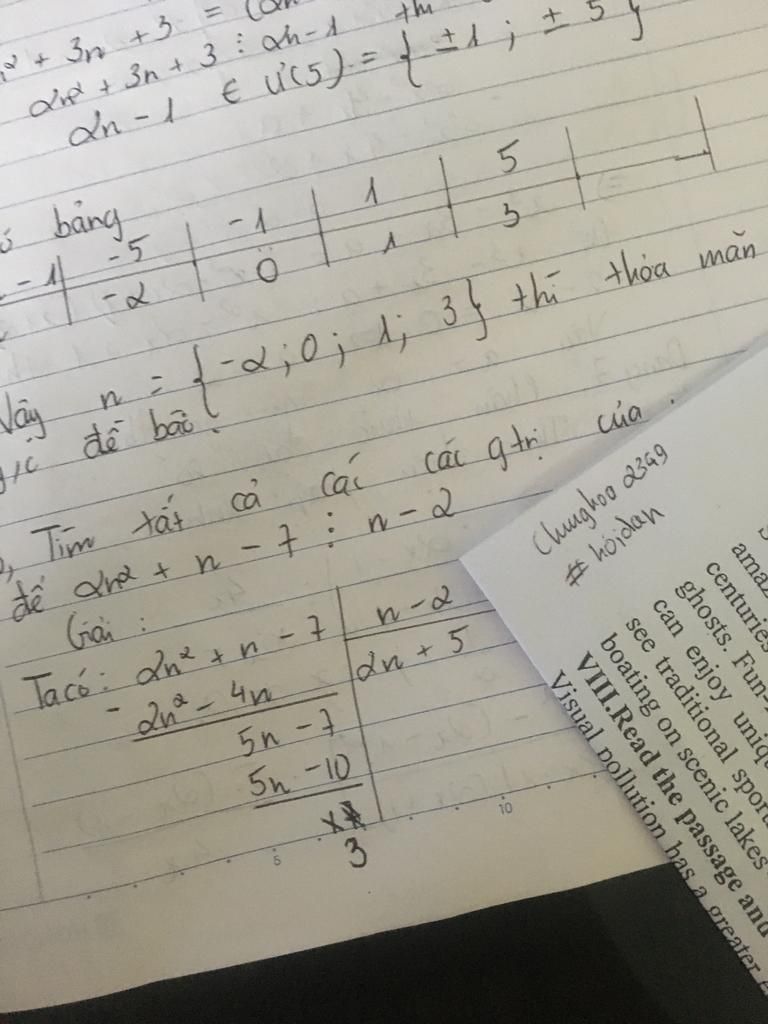 ² + 3n + 3 = (2n
2n² + 3n + 3 ⋮ 2n-1 thì
2n - 1 ∈ Ư(5) = { ±1 ; ± 5 }
ó bảng
- 1 | -5 | -1 | 1 | 5
-2 | 0 | 1 | 3
Vậy n = { -2 ; 0 ; 1 ; 3 } thì thỏa mãn
đề bài.
Tìm tất cả các các gtrị của
để 2n² + n - 7 ⋮ n - 2
Giải :
Ta có : 2n² + n - 7 | n - 2
- 2n² - 4n | 2n + 5
5n - 7
5n - 10
3
5 10
Chunghoo 2349
# hoidan
amaz
centuries
ghosts. Fun-
can enjoy uniqu
see traditional sport
boating on scenic lakes
VIII.Read the passage and
Visual pollution has a greater e